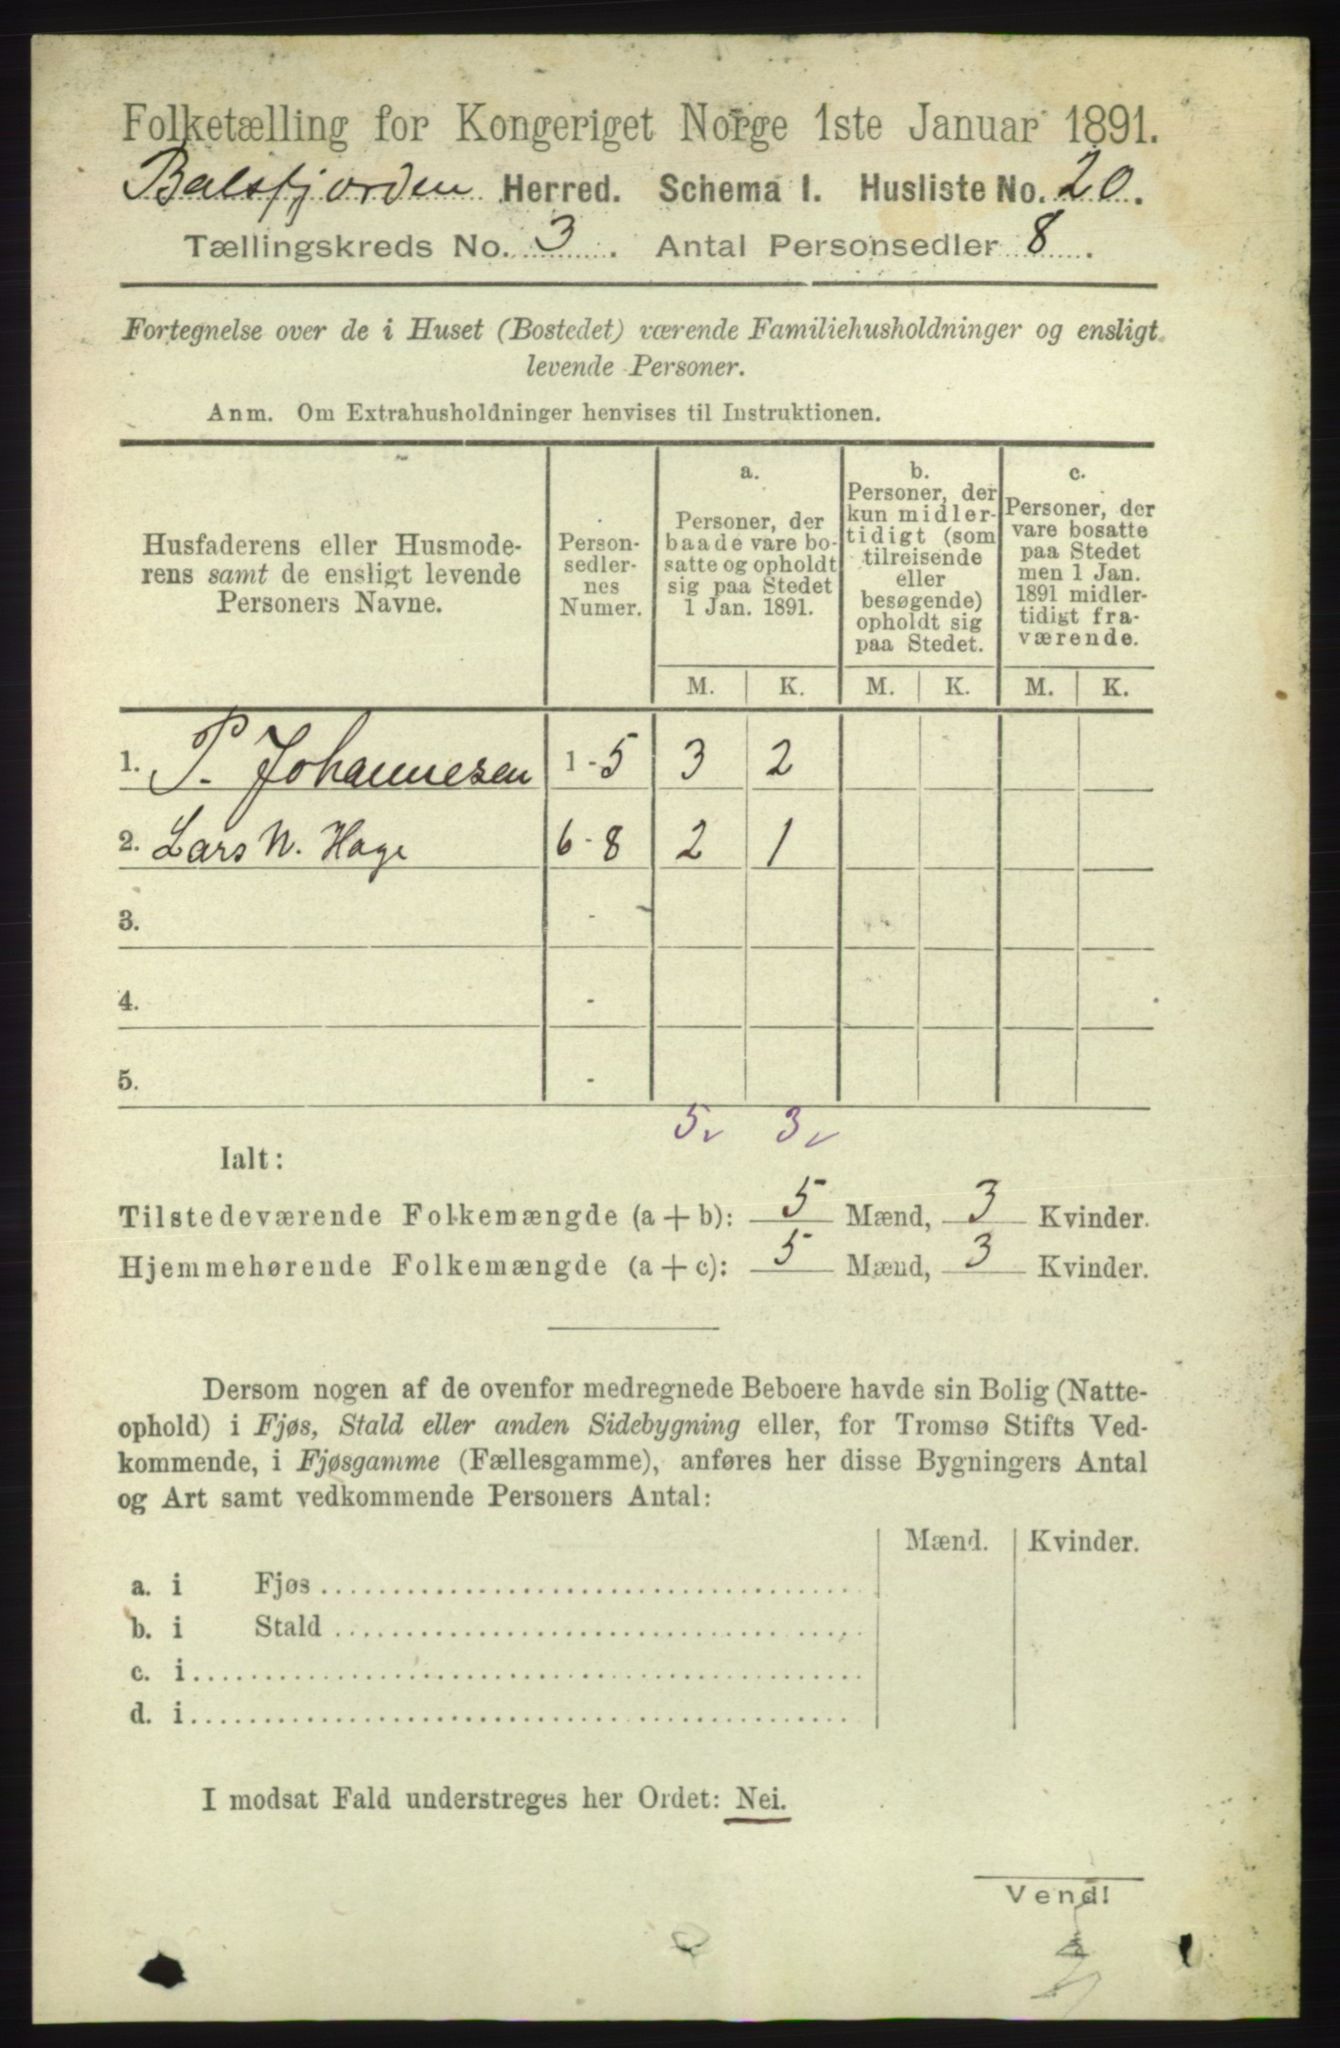 Folketælling for Kongeriget Norge 1ste Januar 1891.
Balsfjorden Herred. Schema I. Husliste No. 20.
Tællingskreds No. 3. Antal Personsedler 8.
Fortegnelse over de i Huset (Bostedet) værende Familiehusholdninger og ensligt
levende Personer.
Anm. Om Extrahusholdninger henvises til Instruktionen.
Husfaderens eller Husmode-
rens samt de ensligt levende
Personers Navne.
Person-
sedler-
nes
Numer.
a.
Personer, der
baade vare bo-
satte og opholdt
sig paa Stedet
1 Jan. 1891.
b.
Personer, der
kun midler-
tidigt (som
tilreisende
eller
besøgende)
opholdt sig
paa Stedet.
c.
Personer, der
vare bosatte
paa Stedet
men 1 Jan.
1891 midler-
tidigt fra-
værende.
M. K. M. K. M. K.
1. P. Johannesen 1 - 5 3 2
2. Lars N. Hage 6 - 8 2 1
3. -
4. -
5. -
5 3
Ialt:
Tilstedeværende Folkemængde (a + b): 5 Mænd, 3 Kvinder.
Hjemmehørende Folkemængde (a + c): 5 Mænd, 3 Kvinder.
Dersom nogen af de ovenfor medregnede Beboere havde sin Bolig (Natte-
ophold) i Fjøs, Stald eller anden Sidebygning eller, for Tromsø Stifts Ved-
kommende, i Fjøsgamme (Fællesgamme), anføres her disse Bygningers Antal
og Art samt vedkommende Personers Antal:
Mænd. Kvinder.
a. i Fjøs
b. i Stald
c. i
d. i
I modsat Fald understreges her Ordet: Nei.
Vend!